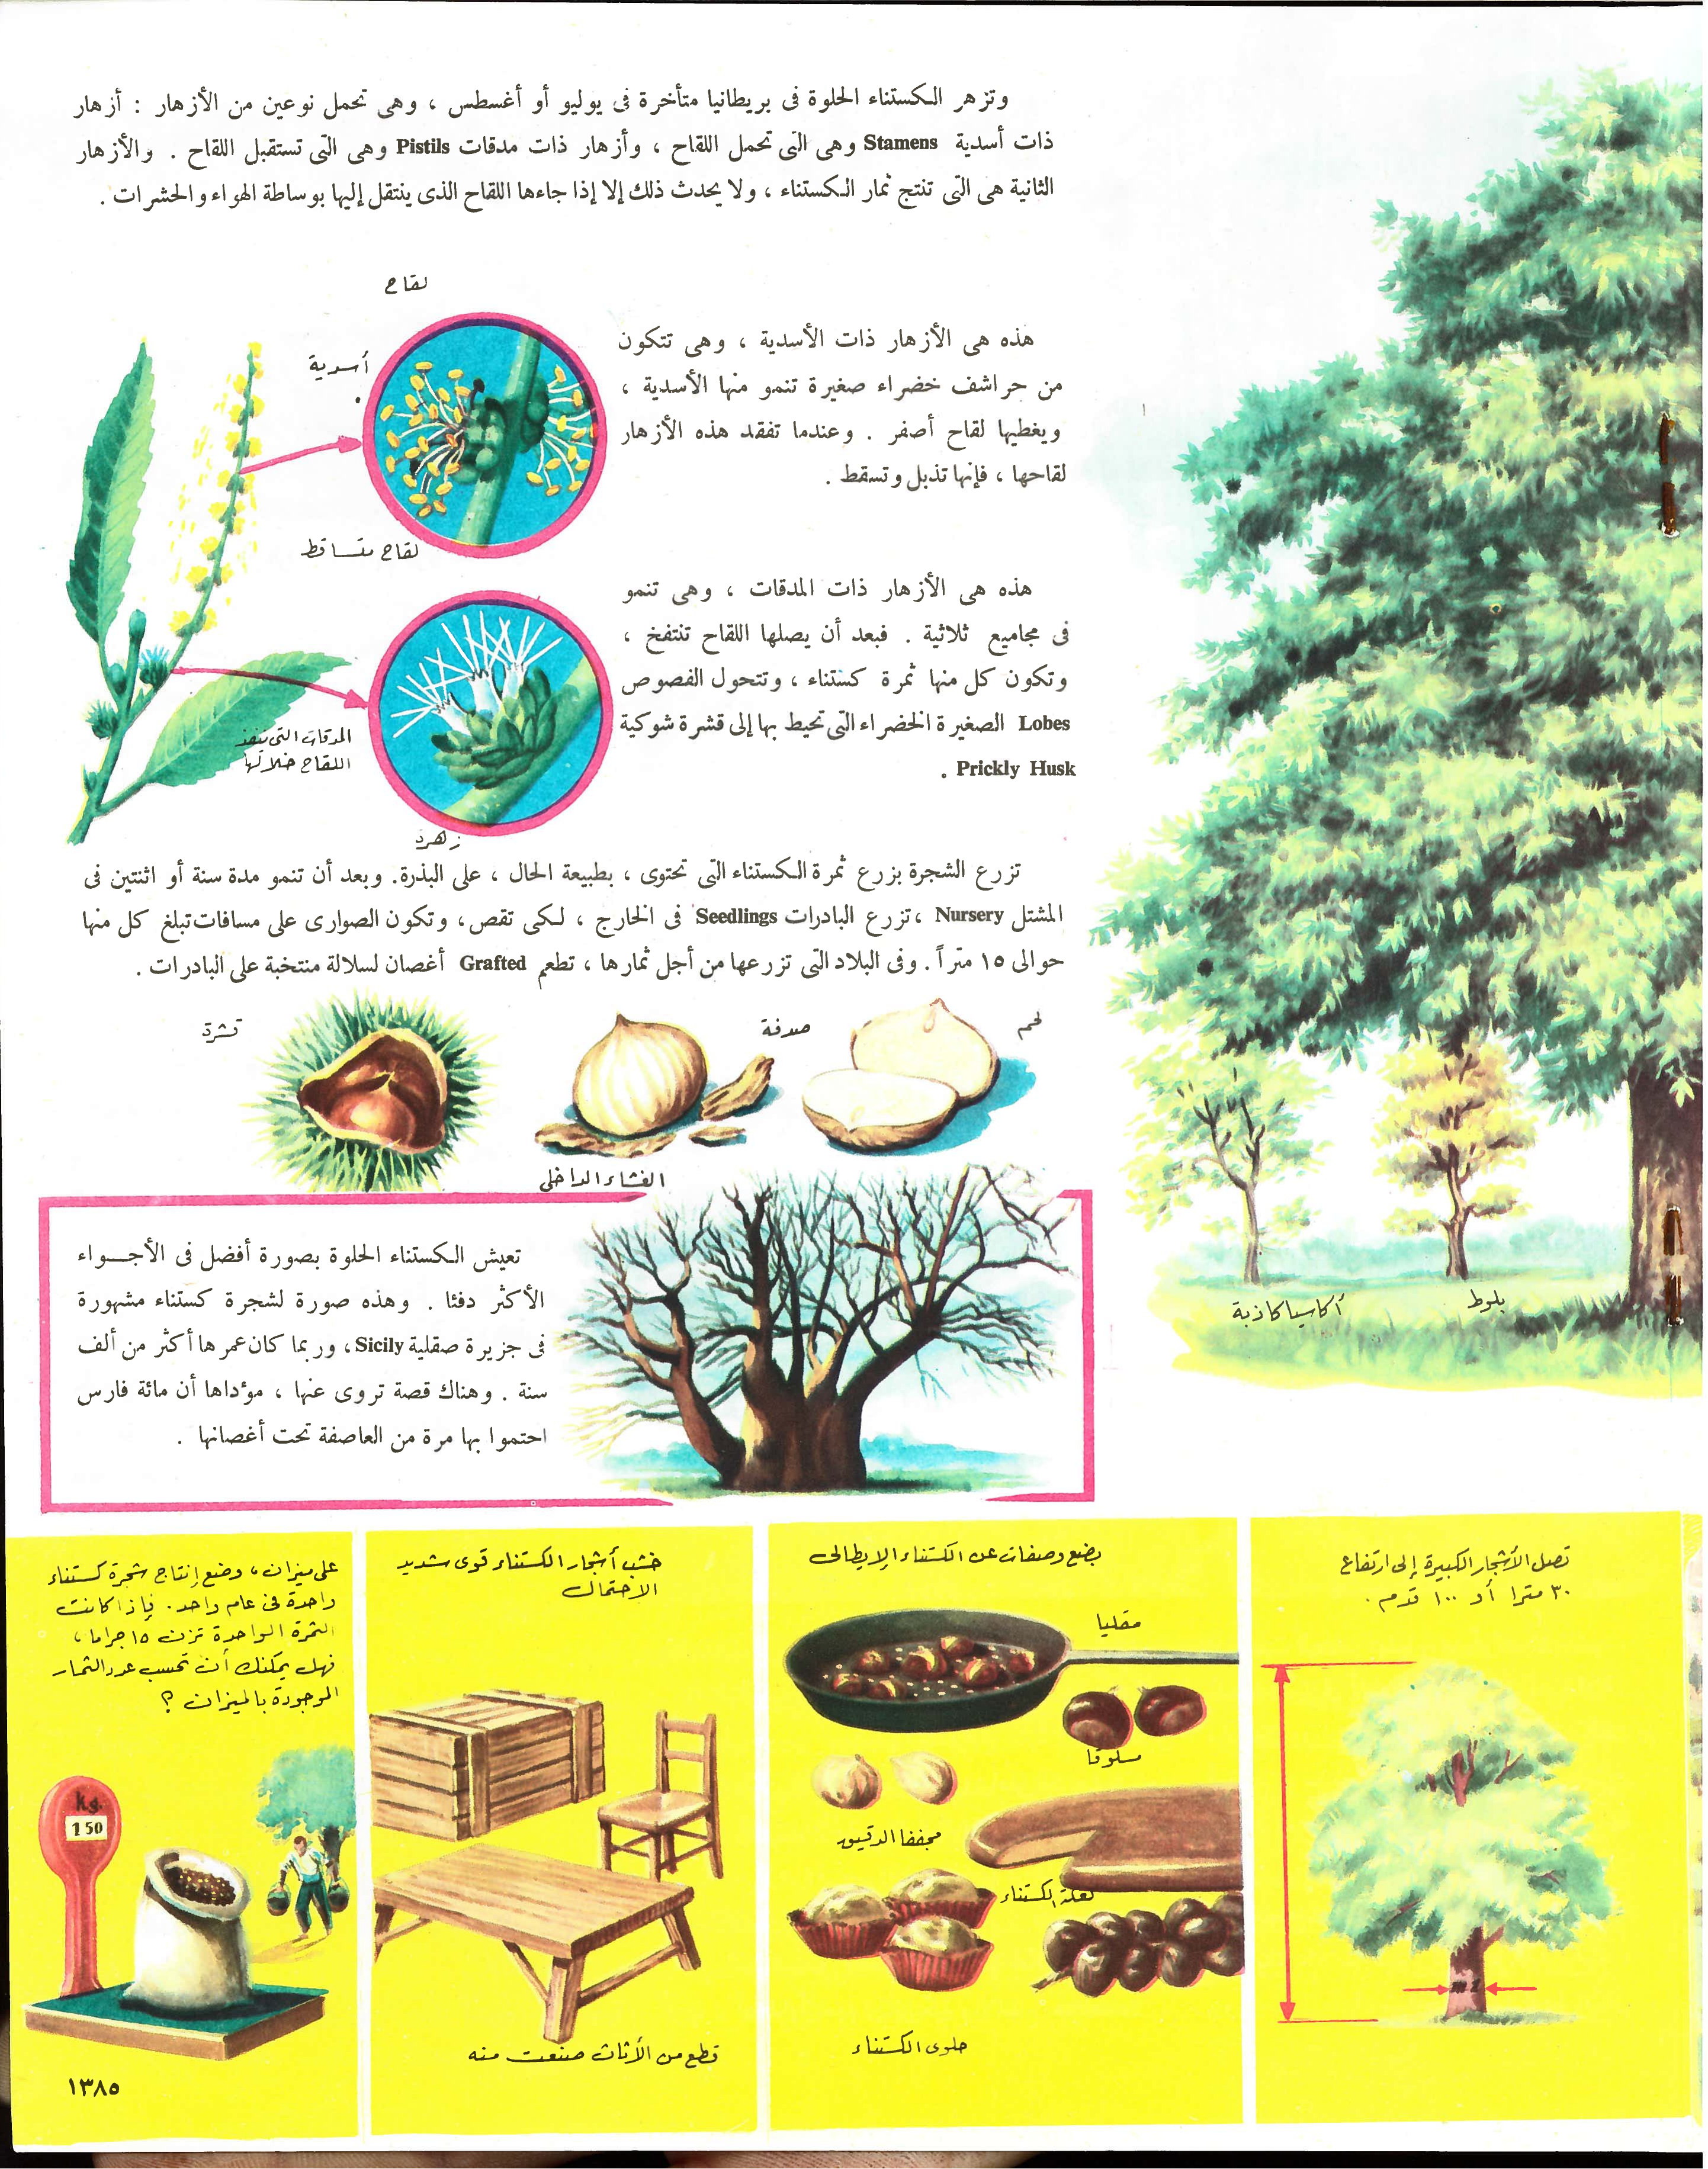 وتزهر الكستناء الحلوة فى بريطانيا متأخرة فى يوليو أو أغسطس ، وهى تحمل نوعين من الأزهار : أزهار
ذات أسدية Stamens وهى التى تحمل اللقاح ، وأزهار ذات مدقات Pistils وهى التى تستقبل اللقاح . والأزهار
الثانية هى التى تنتج ثمار الكستناء ، ولا يحدث ذلك إلا إذا جاءها اللقاح الذى ينتقل إليها بوساطة الهواء والحشرات .
لقاح
أسدية
هذه هى الأزهار ذات الأسدية ، وهى تتكون
من حراشف خضراء صغيرة تنمو منها الأسدية ،
ويغطيها لقاح أصفر . وعندما تفقد هذه الأزهار
لقاحها ، فإنها تذبل وتسقط .
لقاح متساقط
هذه هى الأزهار ذات المدقات ، وهى تنمو
فى مجاميع ثلاثية . فبعد أن يصلها اللقاح تنتفخ ،
وتكون كل منها ثمرة كستناء ، وتتحول الفصوص
Lobes الصغيرة الخضراء التى تحيط بها إلى قشرة شوكية
Prickly Husk .
المدقات التى ينفذ
اللقاح خلالها
زهرة
تزرع الشجرة بزرع ثمرة الكستناء التى تحتوى ، بطبيعة الحال ، على البذرة. وبعد أن تنمو مدة سنة أو اثنتين فى
المشتل Nursery ، تزرع البادرات Seedlings فى الخارج ، لكى تقص ، وتكون الصوارى على مسافات تبلغ كل منها
حوالى ١٥ متراً . وفى البلاد التى تزرعها من أجل ثمارها ، تطعم Grafted أغصان لسلالة منتخبة على البادرات .
لحم
صدفة
قشرة
الغشاء الداخلى
تعيش الكستناء الحلوة بصورة أفضل فى الأجـــواء
الأكثر دفئا . وهذه صورة لشجرة كستناء مشهورة
فى جزيرة صقلية Sicily ، وربما كان عمرها أكثر من ألف
سنة . وهناك قصة تروى عنها ، مؤداها أن مائة فارس
احتموا بها مرة من العاصفة تحت أغصانها .
بلوط
أكاسيا كاذبة
تصل الأشجار الكبيرة إلى ارتفاع
٣٠ مترا أو ١٠٠ قدم .
بضع وصفات عن الكستناء الإيطالى
مقليا
مسلوقا
مجففا الدقيق
كعكة الكستناء
حلوى الكستناء
خشب أشجار الكستناء قوى شديد
الاحتمال
قطع من الأثاث صنعت منه
على ميزان ، وضع إنتاج شجرة كستناء
واحدة فى عام واحد . فإذا كانت
الثمرة الواحدة تزن ١٥ جراما ،
فهل يمكنك أن تحسب عدد الثمار
الموجودة بالميزان ؟
kg.
150
١٣٨٥